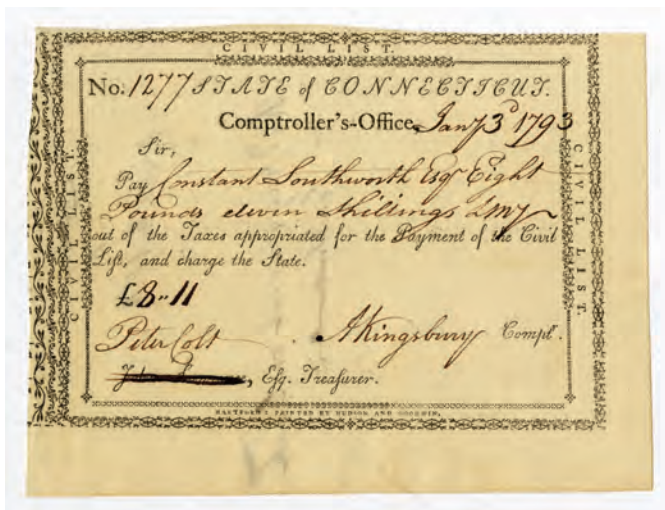 CIVIL LIST.
No. 1277 STATE of CONNECTICUT.
Comptroller's-Office, Jany 3d 1793
Sir,
Pay Constant Southworth Esqr Eight
Pounds eleven Shillings LMy
out of the Taxes appropriated for the Payment of the Civil
List, and charge the State.
£8"11
Peter Colt AKingsbury Compt.
Esq. Treasurer.
HARTFORD: PRINTED BY HUDSON AND GOODWIN.
CIVIL LIST.
CIVIL LIST.